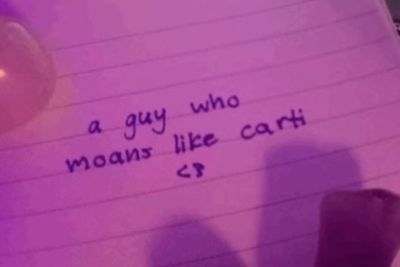 a guy who
moans like carti
<3